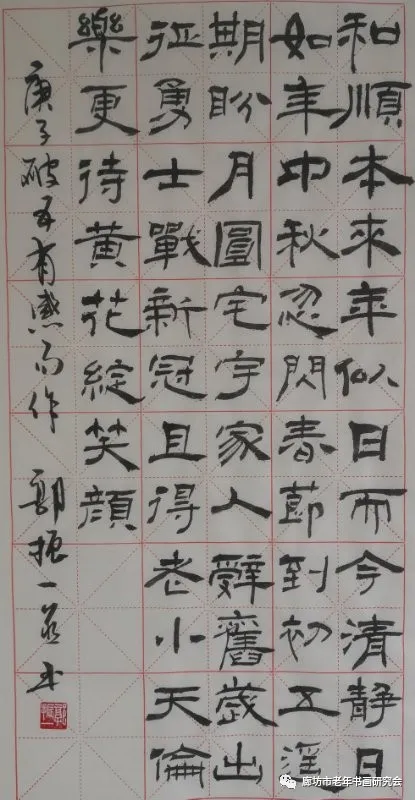 和順本來年似日而今清靜日
如年中秋忽閃春節到初五淫
期盼月圓宅宇家人辭舊歲出
征勇士戰新冠且得老小天倫
樂更待黃花綻笑顏
庚子破五有感而作 郭振一並书
廊坊市老年书画研究会